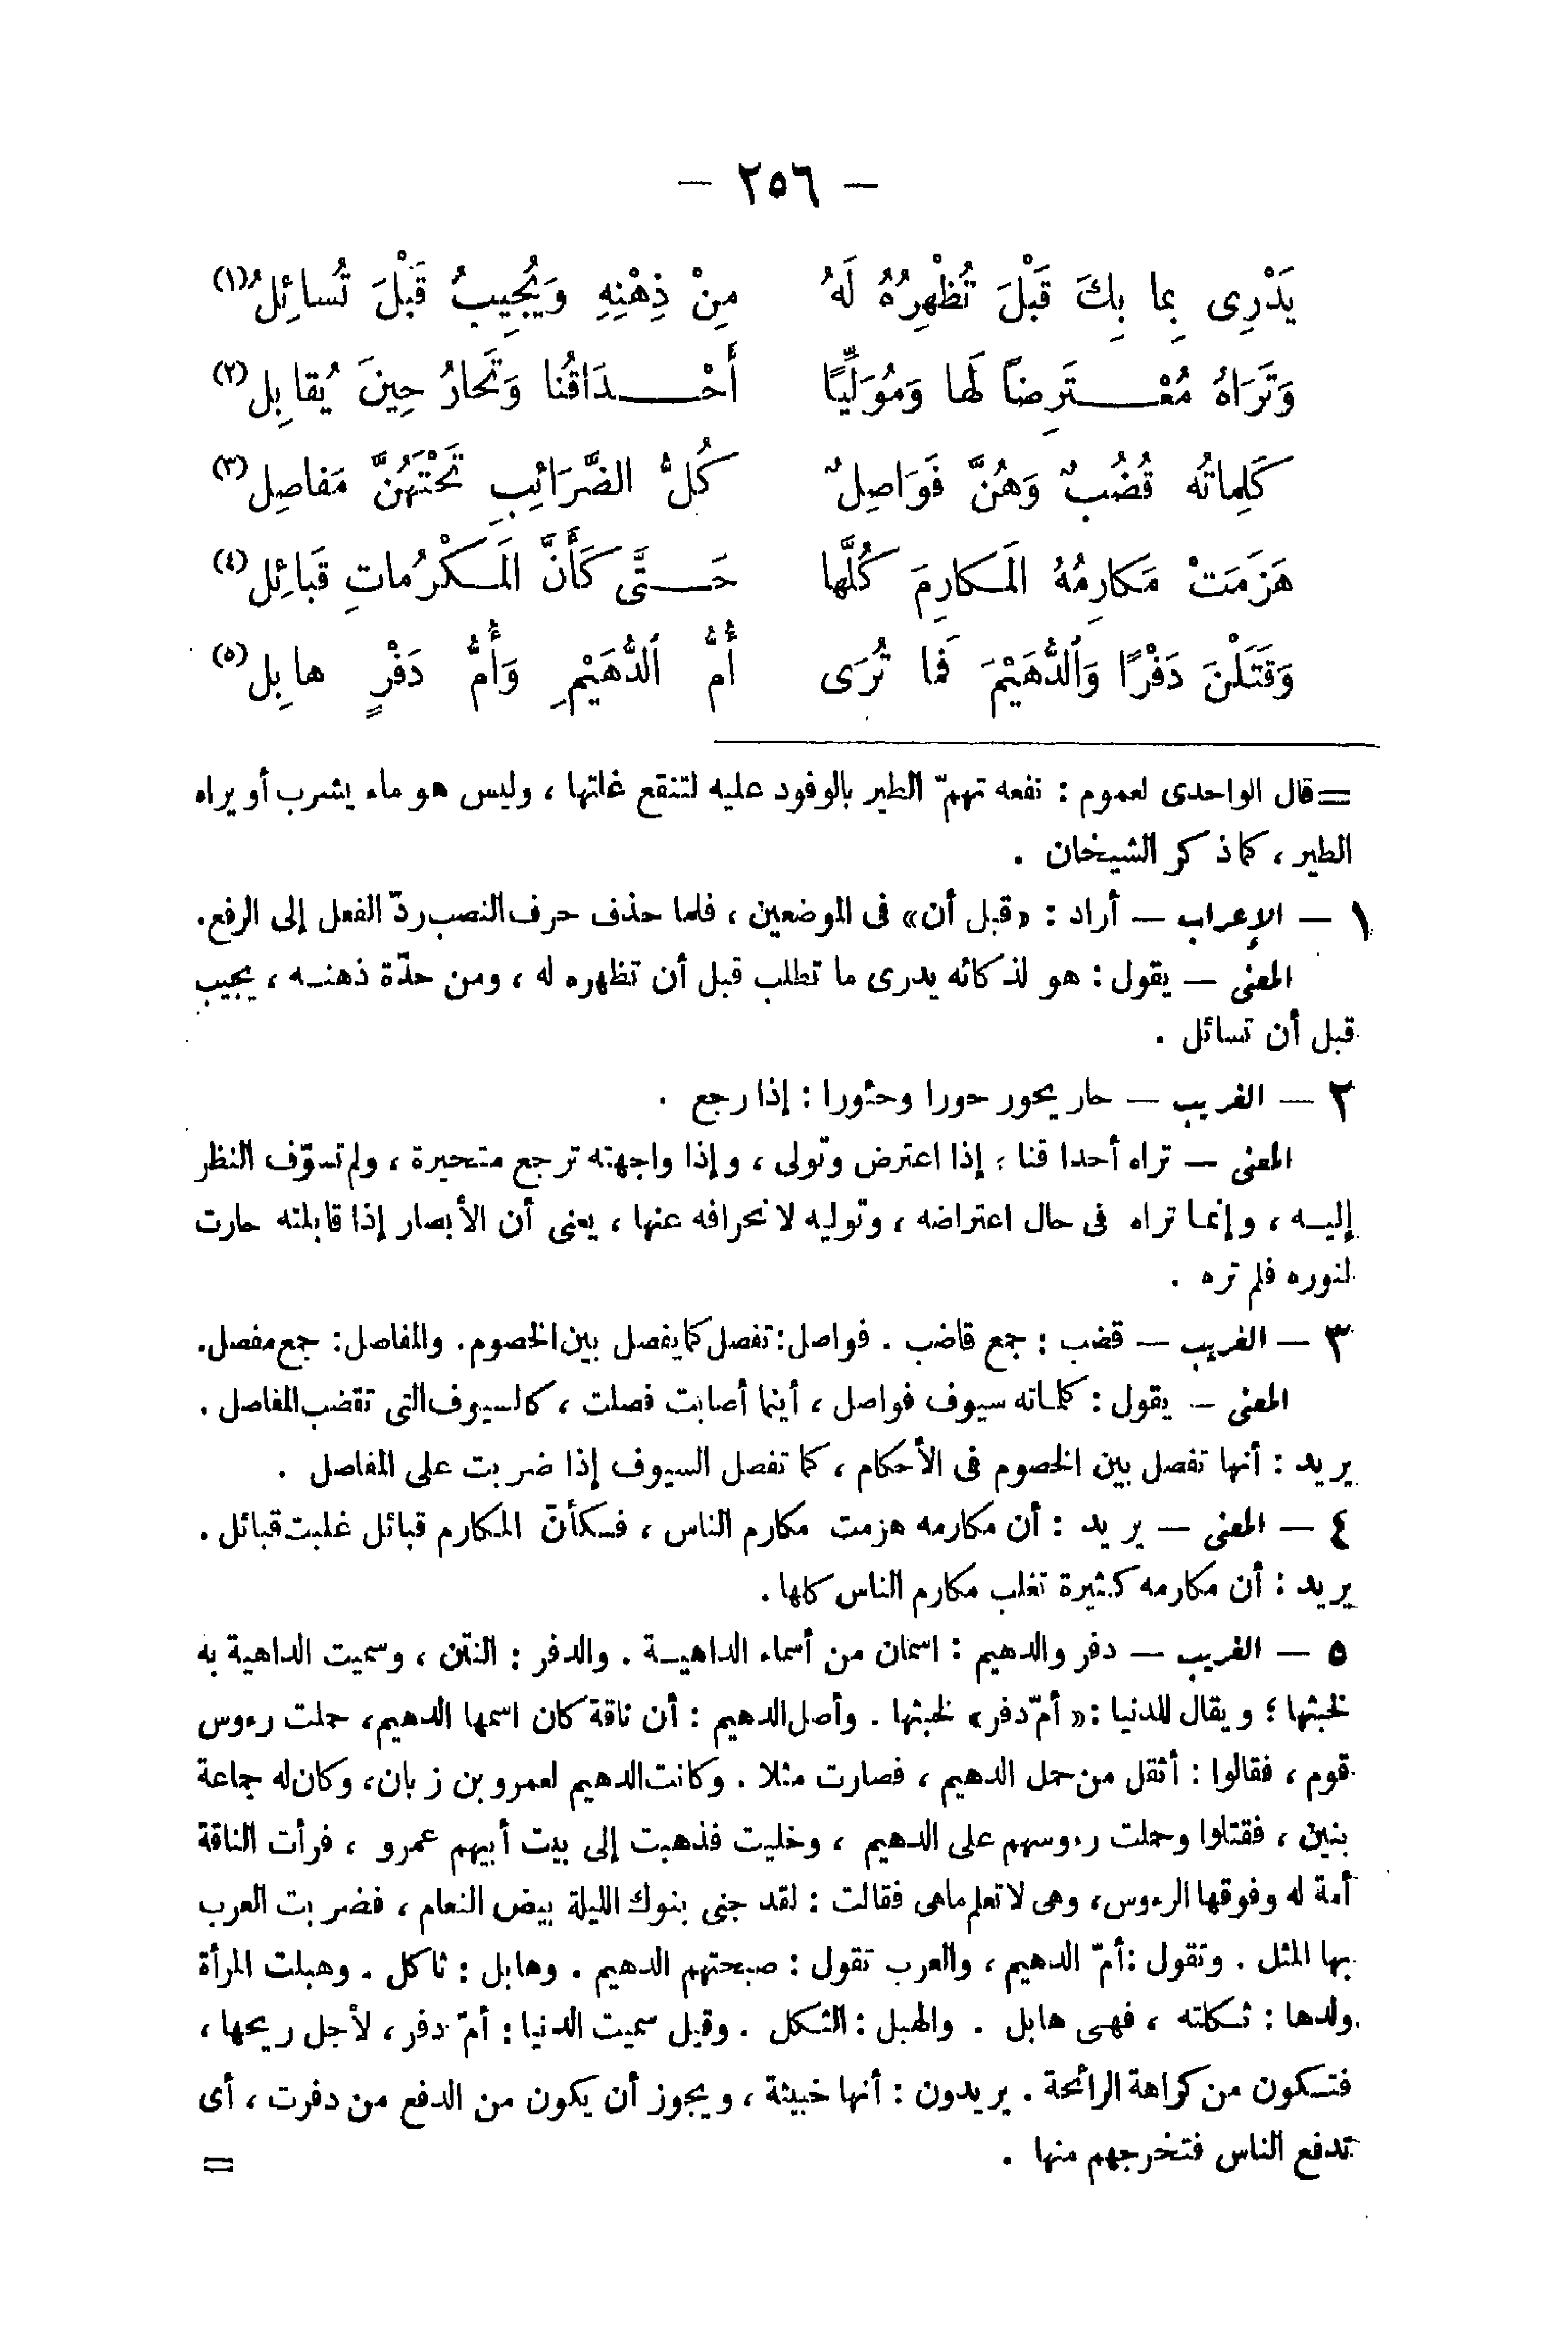 — ٢٥٦ —
يَدْرِى بِما بِكَ قَبْلَ تُظْهِرُهُ لَهُ مِنْ ذِهْنِهِ وَيُجِيبُ قَبْلَ تُسائِلُ(١)
وَتَرَاهُ مُعْـتَرِضاً لَها وَمُوَلِّيًا أَحْـدَاقُنا وَتَحارُ حِينَ يُقابِل(٢)
كَلِماتُه قُضُبٌ وَهُنَّ فَوَاصِلٌ كُلُّ الضَّرَائِبِ تَحْتَهُنَّ مَفاصِل(٣)
هَزَمَتْ مَكارِمُهُ المَكارِمَ كُلَّها حَـتَّى كَأَنَّ المَكْرُماتِ قَبائِل(٤)
وَقَتَلْنَ دَفْرًا وَٱلدُّهَيْمَ فَما تُرَى أُمُّ ٱلدُّهَيْمِ وَأُمُّ دَفْرٍ هابِل(٥)
=قال الواحدى لعموم : نفعه تهمّ الطير بالوفود عليه لتنقع غلتها ، وليس هو ماء يشرب أو يراه
الطير ، كما ذكر الشيخان .
١ — الإعراب — أراد : «قبل أن» فى الموضعين ، فلما حذف حرف النصب ردّ الفعل إلى الرفع.
المعنى — يقول : هو لذكائه يدرى ما تطلب قبل أن تظهره له ، ومن حدّة ذهنـه ، يجيب
قبل أن تسائل .
٢ — الغريب — حار يحور حورا وحئورا : إذا رجع .
المعنى — تراه أحداقنا ، إذا اعترض وتولى ، وإذا واجهته ترجع متحيرة ، ولم تسوّف النظر
إليـه ، وإنما تراه فى حال اعتراضه ، وتوليه لانحرافه عنها ، يعنى أن الأبصار إذا قابلته حارت
لنوره فلم تره .
٣ — الغريب — قضب : جمع قاضب . فواصل : تفصل كما يفصل بين الخصوم. والمفاصل : جمع مفصل.
المعنى — يقول : كلماته سيوف فواصل ، أينما أصابت فصلت ، كالسيوف التى تقضب المفاصل .
يريد : أنها تفصل بين الخصوم فى الأحكام ، كما تفصل السيوف إذا ضربت على المفاصل .
٤ — المعنى — يريد : أن مكارمه هزمت مكارم الناس ، فكأنّ المكارم قبائل غلبت قبائل .
يريد : أن مكارمه كثيرة تغلب مكارم الناس كلها.
٥ — الغريب — دفر والدهيم : اسمان من أسماء الداهيـة . والدفر : النتن ، وسميت الداهية به
لخبثها ؛ ويقال للدنيا : «أمّ دفر» لخبثها . وأصل الدهيم : أن ناقة كان اسمها الدهيم، حملت رءوس
قوم ، فقالوا : أثقل من حمل الدهيم ، فصارت مثلا . وكانت الدهيم لعمرو بن زبان، وكان له جماعة
بنين ، فقتلوا وحملت رءوسهم على الدهيم ، وخليت فذهبت إلى بيت أبيهم عمرو ، فرأت الناقة
أمة له وفوقها الرءوس، وهى لا تعلم ماهى فقالت : لقد جنى بنوك الليلة بيض النعام ، فضربت العرب
بها المثل . وتقول : أمّ الدهيم ، والعرب تقول : صبحتهم الدهيم . وهابل : ثاكل . وهبلت المرأة
ولدها : ثـكلته ، فهى هابل . والهبل : الثكل . وقيل سميت الدنيا : أمّ دفر ، لأجل ريحها ،
فتـكون من كراهة الرائحة . يريدون : أنها خبيثة ، ويجوز أن يكون من الدفع من دفرت ، أى
تدفع الناس فتخرجهم منها . =